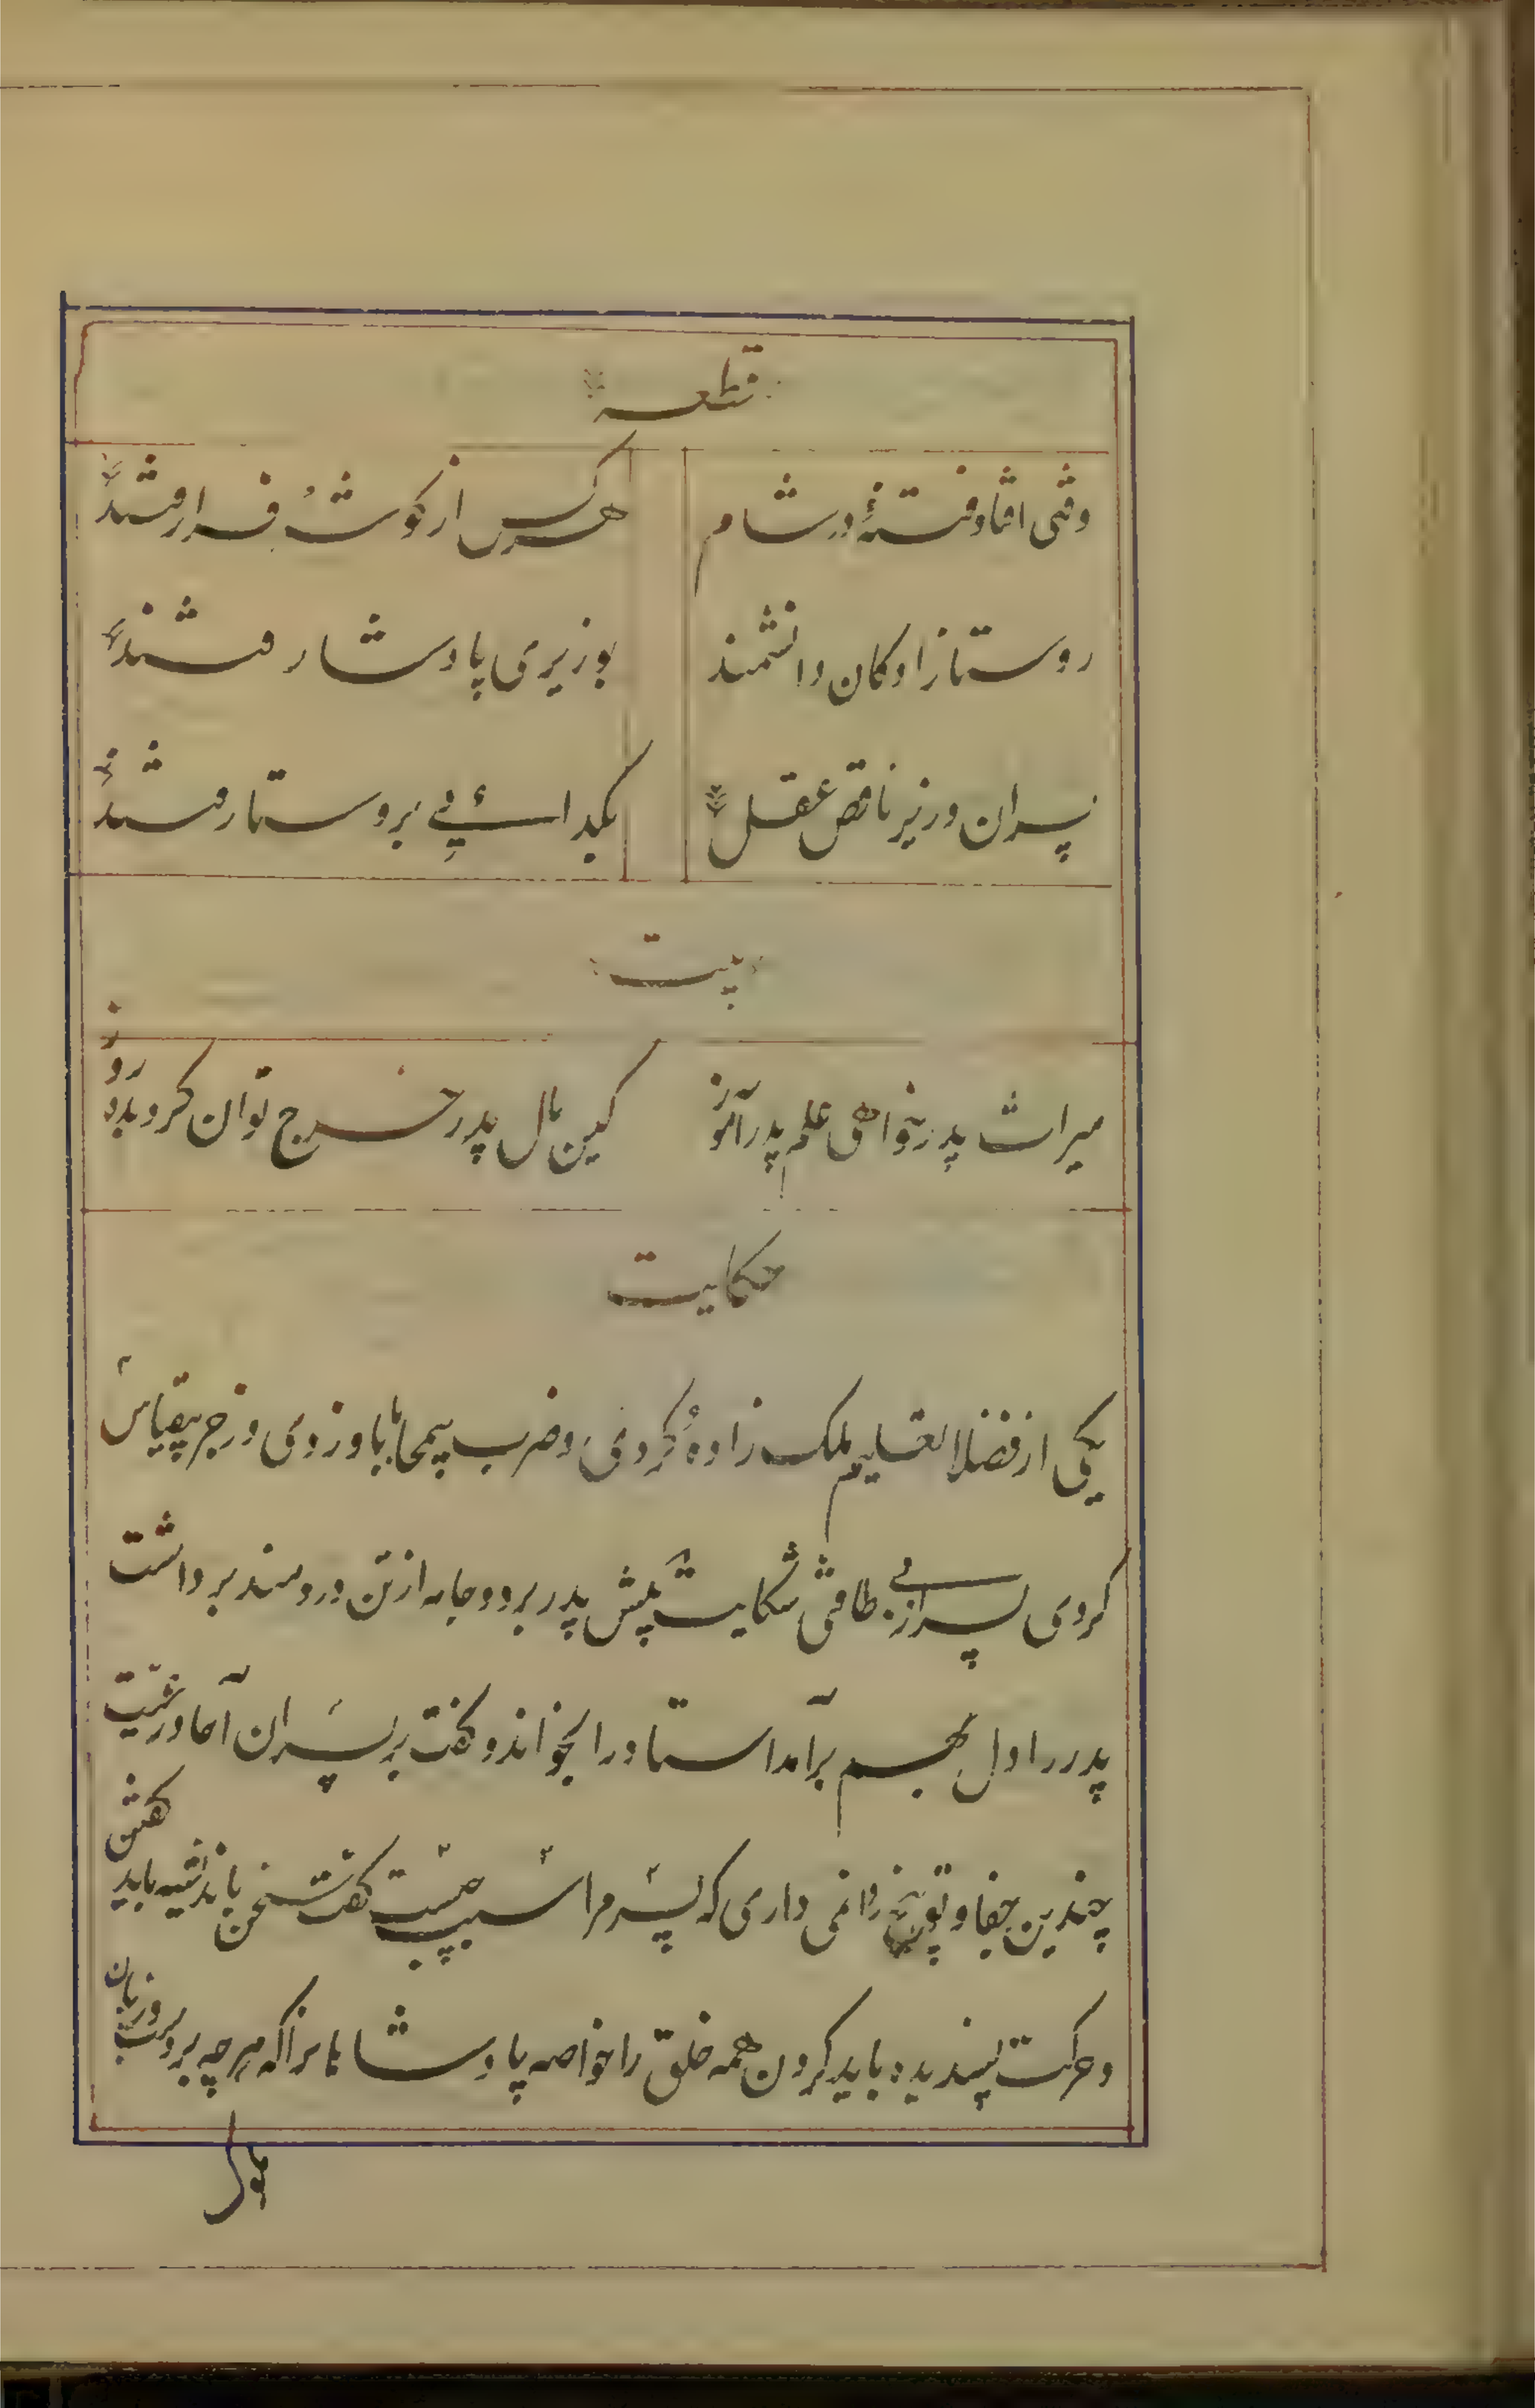 قطعه
وقتی افتاد فتنهٔ در شام هر کس از گوشهٔ فرا رفتند
روستازادگان دانشمند بوزیری پادشا رفتند
پسران وزیر ناقص عقل بگدائی بروستا رفتند
بیت
میراث پدر خواهی علم پدر آموز کین مال پدر خرج توان کرد بده روز
حکایت
یکی از فضلا تعلیم ملک زادهٔ کردی و ضرب بیمحابا زدی و زجر بیقیاس
کردی پسر از بی طاقتی شکایت پیش پدر برد و جامه از تن دردمند برداشت
پدر را دل بهم برآمد استاد را بخواند و گفت بر پسران آحاد رعیت
چندین جفا و توبیخ روا نمی داری که پسر مرا سبب چیست گفت سخن باندیشه باید گفتن
و حرکت پسندیده باید کردن همه خلق را خاصه پادشاهانرا که هر چه بر دست و زبان
ملوک